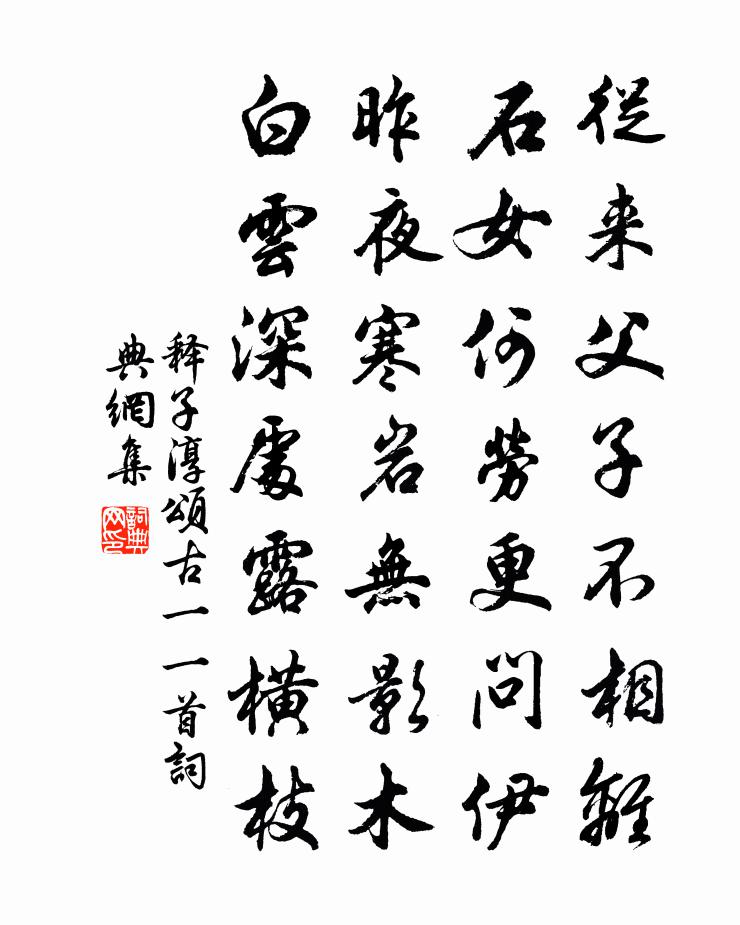 従来父子不相離
石女何勞更問伊
昨夜寒岩無影木
白雲深處露横枝
释子淳頌古一一首詞
典網集
詞典网印